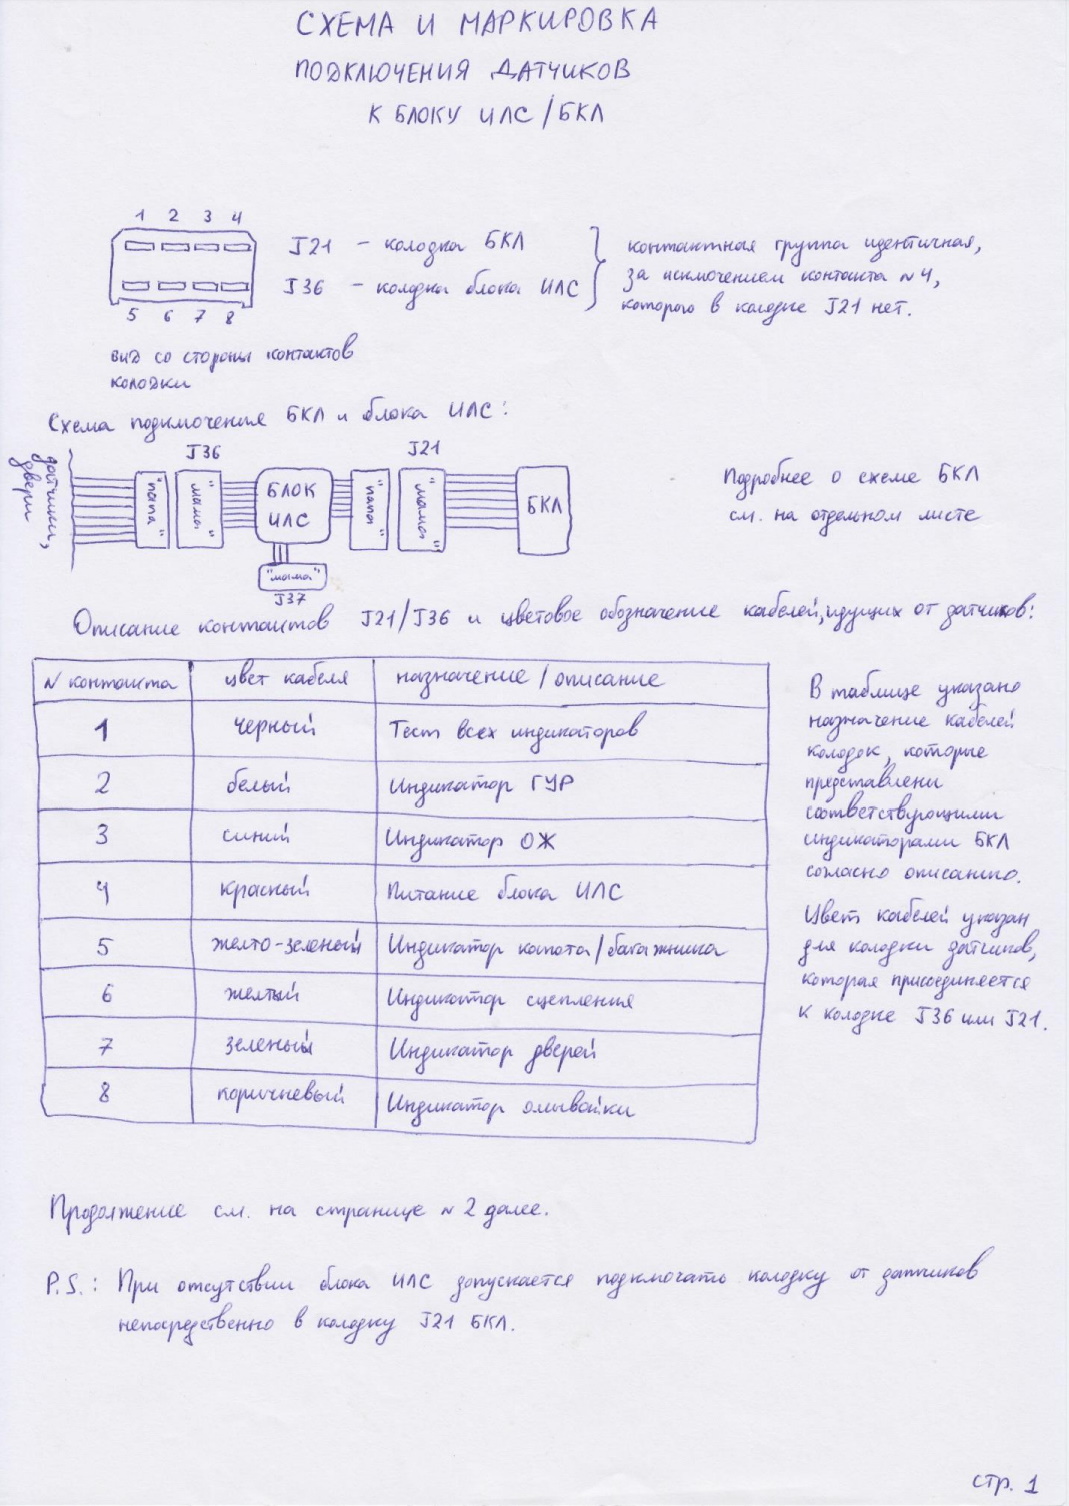 СХЕМА И МАРКИРОВКА
ПОДКЛЮЧЕНИЯ ДАТЧИКОВ
К БЛОКУ ИЛС/БКЛ
1 2 3 4
5 6 7 8
J21 - колодка БКЛ
J36 - колодка блока ИЛС
контактная группа идентичная,
за исключением контакта N4,
которого в колодке J21 нет.
вид со стороны контактов
колодки
Схема подключения БКЛ и блока ИЛС:
датчики,
двери
"папа"
J36
"мама"
БЛОК
ИЛС
"мама"
J37
"папа"
J21
"мама"
БКЛ
Подробнее о схеме БКЛ
см. на отдельном листе
Описание контактов J21/J36 и цветовое обозначение кабелей, идущих от датчиков:
N контакта цвет кабеля назначение/описание
1 черный Тест всех индикаторов
2 белый Индикатор ГУР
3 синий Индикатор ОЖ
4 красный Питание блока ИЛС
5 желто-зеленый Индикатор капота/багажника
6 желтый Индикатор сцепления
7 зеленый Индикатор дверей
8 коричневый Индикатор омывайки
В таблице указано
назначение кабелей
колодок, которые
представлени
соответствующими
индикаторами БКЛ
согласно описанию.
Цвет кабелей указан
для колодки датчиков,
которая присоединяется
к колодке J36 или J21.
Продолжение см. на странице N2 далее.
P.S.: При отсутствии блока ИЛС допускается подключать колодку от датчиков
непосредственно в колодку J21 БКЛ.
стр. 1